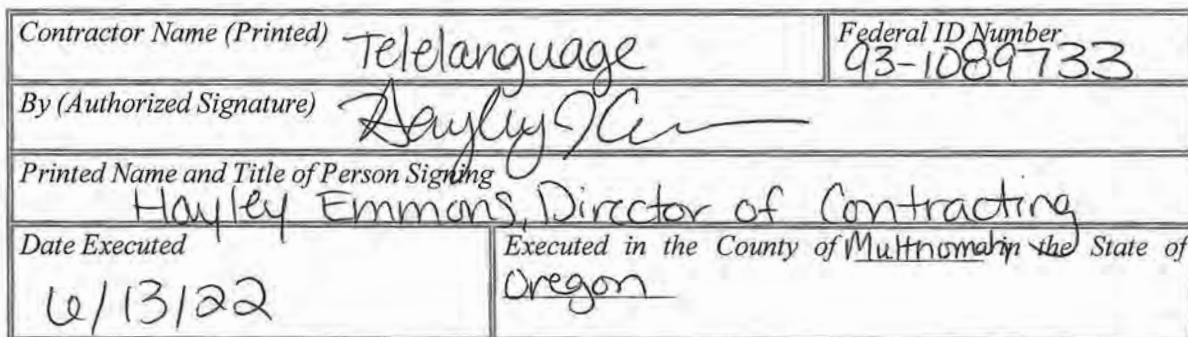 Contractor Name (Printed) Telelanguage
Federal ID Number
93-1089733
By (Authorized Signature)
Printed Name and Title of Person Signing
Hayley Emmons, Director of Contracting
Date Executed
6/13/22
Executed in the County of Multnomah in the State of
Oregon